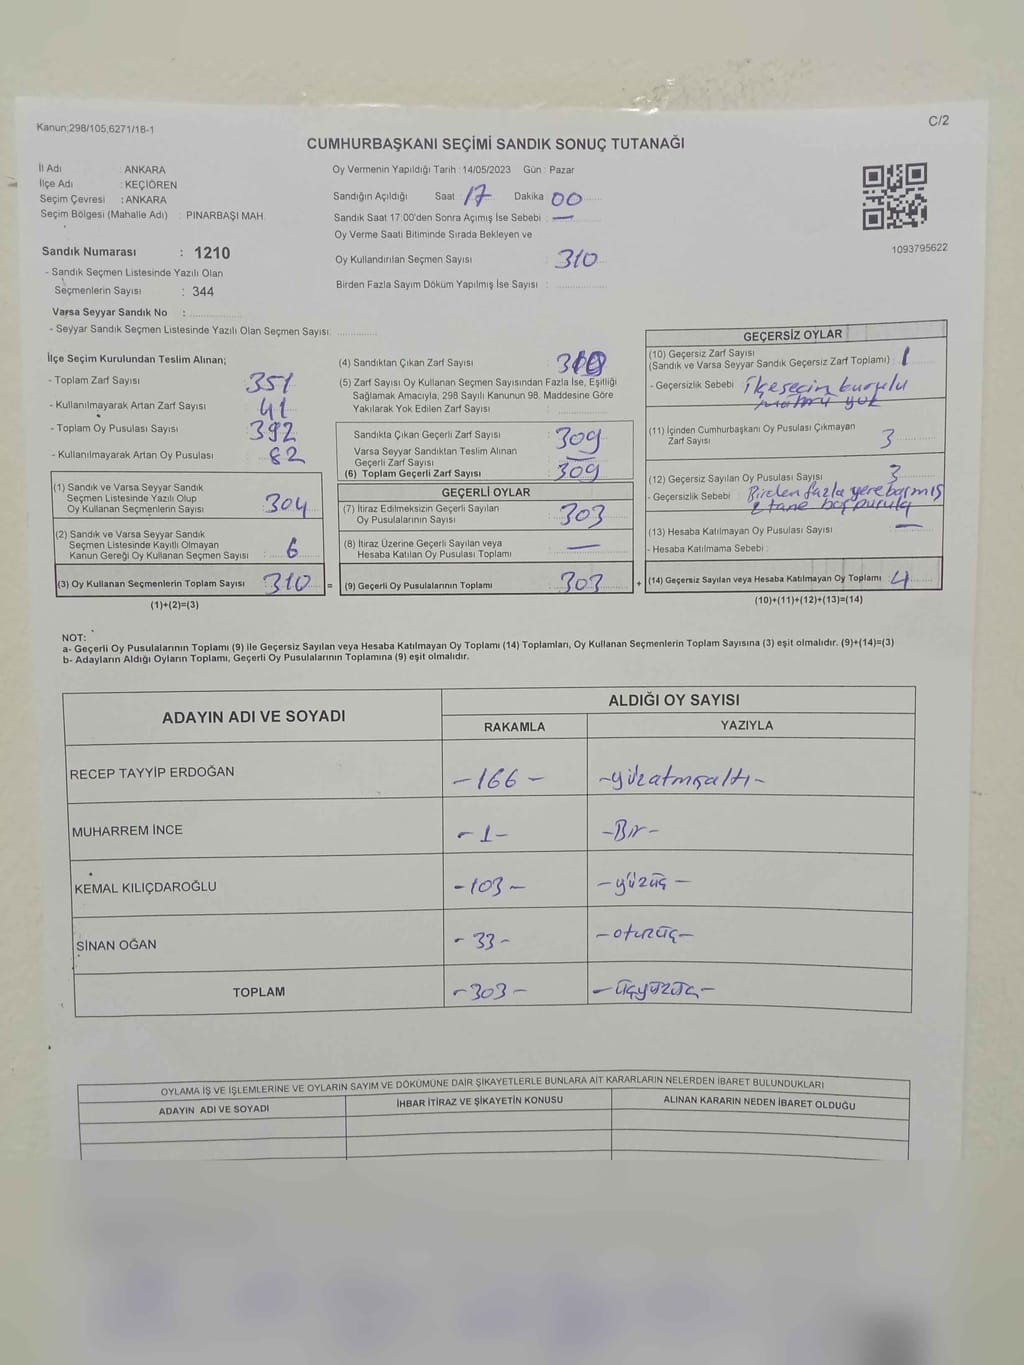 Kanun;298/105;6271/18-1
C/2
CUMHURBAŞKANI SEÇİMİ SANDIK SONUÇ TUTANAĞI
İl Adı : ANKARA
İlçe Adı : KEÇİÖREN
Seçim Çevresi : ANKARA
Seçim Bölgesi (Mahalle Adı) : PINARBAŞI MAH.
Sandık Numarası : 1210
- Sandık Seçmen Listesinde Yazılı Olan
Seçmenlerin Sayısı : 344
Varsa Seyyar Sandık No :
- Seyyar Sandık Seçmen Listesinde Yazılı Olan Seçmen Sayısı:
Oy Vermenin Yapıldığı Tarih : 14/05/2023 Gün : Pazar
Sandığın Açıldığı Saat 17 Dakika 00
Sandık Saat 17:00'den Sonra Açımış İse Sebebi : —
Oy Verme Saati Bitiminde Sırada Bekleyen ve
Oy Kullandırılan Seçmen Sayısı : 310
Birden Fazla Sayım Döküm Yapılmış İse Sayısı :
1093795622
İlçe Seçim Kurulundan Teslim Alınan;
- Toplam Zarf Sayısı 351
- Kullanılmayarak Artan Zarf Sayısı 41
- Toplam Oy Pusulası Sayısı 392
- Kullanılmayarak Artan Oy Pusulası 82
(1) Sandık ve Varsa Seyyar Sandık
Seçmen Listesinde Yazılı Olup
Oy Kullanan Seçmenlerin Sayısı 304
(2) Sandık ve Varsa Seyyar Sandık
Seçmen Listesinde Kayıtlı Olmayan
Kanun Gereği Oy Kullanan Seçmen Sayısı 6
(3) Oy Kullanan Seçmenlerin Toplam Sayısı 310 =
(1)+(2)=(3)
(4) Sandıktan Çıkan Zarf Sayısı
(5) Zarf Sayısı Oy Kullanan Seçmen Sayısından Fazla İse, Eşitliği
Sağlamak Amacıyla, 298 Sayılı Kanunun 98. Maddesine Göre
Yakılarak Yok Edilen Zarf Sayısı :
Sandıkta Çıkan Geçerli Zarf Sayısı : 309
Varsa Seyyar Sandıktan Teslim Alınan
Geçerli Zarf Sayısı : —
(6) Toplam Geçerli Zarf Sayısı : 309
GEÇERLİ OYLAR
(7) İtiraz Edilmeksizin Geçerli Sayılan
Oy Pusulalarının Sayısı : 303
(8) İtiraz Üzerine Geçerli Sayılan veya
Hesaba Katılan Oy Pusulası Toplamı : —
(9) Geçerli Oy Pusulalarının Toplamı : 303 +
GEÇERSİZ OYLAR
(10) Geçersiz Zarf Sayısı
(Sandık ve Varsa Seyyar Sandık Geçersiz Zarf Toplamı) : 1
- Geçersizlik Sebebi : ilçe seçim kurulu
mührü yok
(11) İçinden Cumhurbaşkanı Oy Pusulası Çıkmayan
Zarf Sayısı : 3
(12) Geçersiz Sayılan Oy Pusulası Sayısı : 3
- Geçersizlik Sebebi : Birden fazla yere basmış
tane boş pusula
(13) Hesaba Katılmayan Oy Pusulası Sayısı : —
- Hesaba Katılmama Sebebi :
(14) Geçersiz Sayılan veya Hesaba Katılmayan Oy Toplamı : 4
(10)+(11)+(12)+(13)=(14)
NOT:
a- Geçerli Oy Pusulalarının Toplamı (9) ile Geçersiz Sayılan veya Hesaba Katılmayan Oy Toplamı (14) Toplamları, Oy Kullanan Seçmenlerin Toplam Sayısına (3) eşit olmalıdır. (9)+(14)=(3)
b- Adayların Aldığı Oyların Toplamı, Geçerli Oy Pusulalarının Toplamına (9) eşit olmalıdır.
ADAYIN ADI VE SOYADI
ALDIĞI OY SAYISI
RAKAMLA YAZIYLA
RECEP TAYYİP ERDOĞAN -166- -yüzatmışaltı-
MUHARREM İNCE -1- -Bir-
KEMAL KILIÇDAROĞLU -103- -yüzüç-
SİNAN OĞAN -33- -otuzüç-
TOPLAM -303- -üçyüzüç-
OYLAMA İŞ VE İŞLEMLERİNE VE OYLARIN SAYIM VE DÖKÜMÜNE DAİR ŞİKAYETLERLE BUNLARA AİT KARARLARIN NELERDEN İBARET BULUNDUKLARI
ADAYIN ADI VE SOYADI İHBAR İTİRAZ VE ŞİKAYETİN KONUSU ALINAN KARARIN NEDEN İBARET OLDUĞU